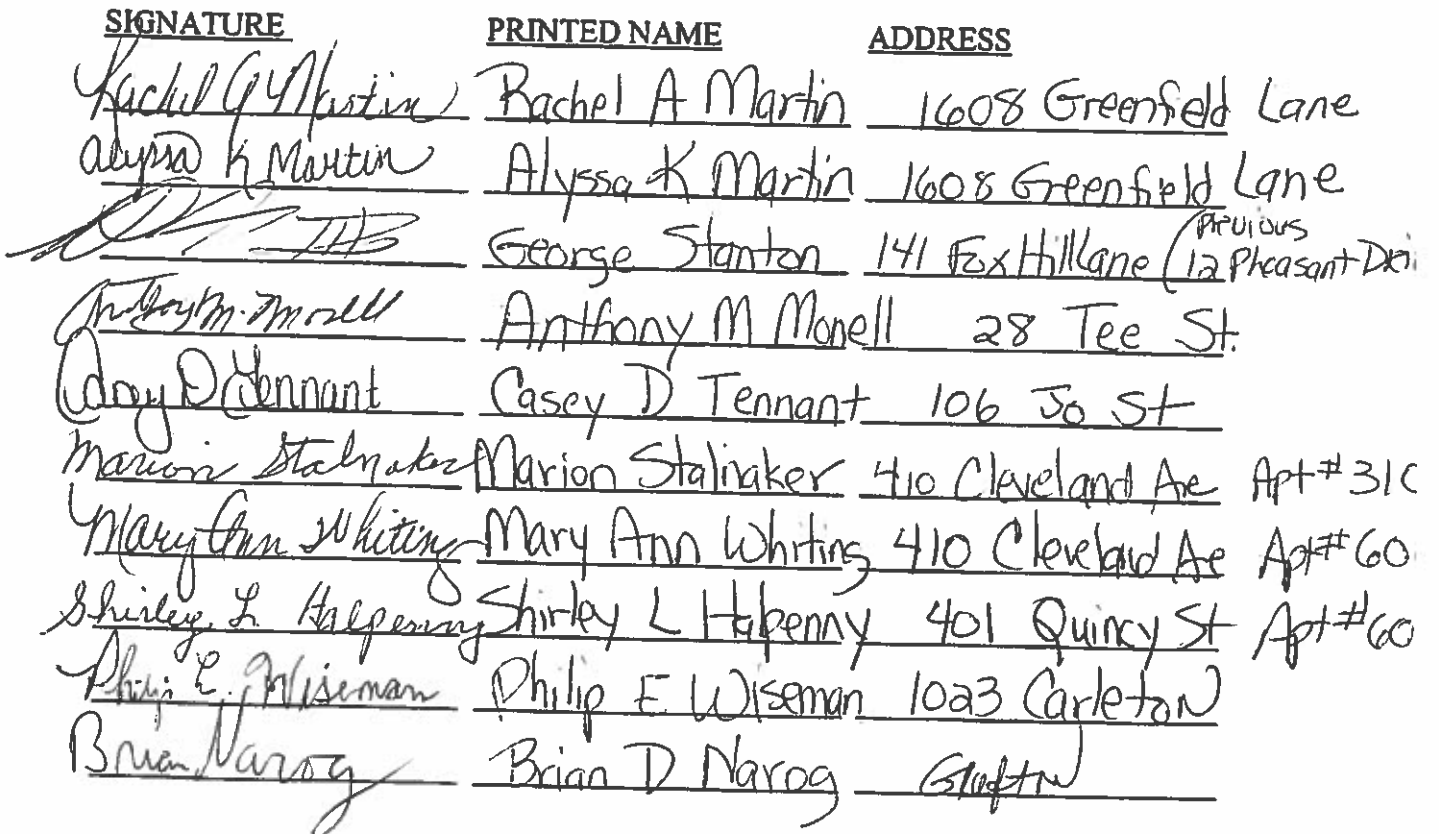 SIGNATURE PRINTED NAME ADDRESS
Rachel A Martin Rachel A Martin 1608 Greenfield Lane
Alyssa K Martin Alyssa K Martin 1608 Greenfield Lane
George Stanton 141 Fox Hill Lane (Previous
12 Pheasant
Anthony M. Monell Anthony M Monell 28 Tee St.
Casey D Tennant Casey D Tennant 106 Jo St
Marion Stalnaker Marion Stalnaker 410 Cleveland Ae Apt# 310
Mary Ann Whiting Mary Ann Whiting 410 Cleveland Ae Apt# 60
Shirley L Halpenny Shirley L Halpenny 401 Quincy St Apt# 60
Philip E. Wiseman Philip E Wiseman 1023 Carleton
Brian Narog Brian D Narog Grafton